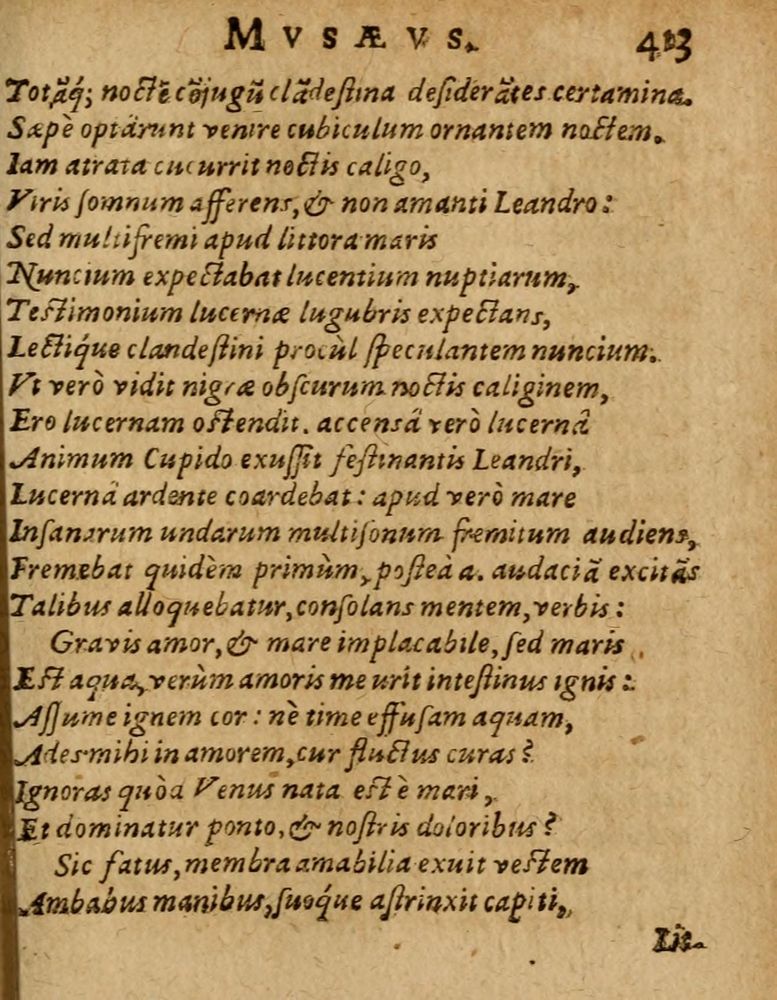 MVSÆVS. 413
Totãq́; noctē cõjugũ clãdeſtina deſiderãtes certamina.
Sæpè optârunt venire cubiculum ornantem noctem.
Iam atrata cucurrit noctis caligo,
Viris ſomnum afferens, & non amanti Leandro:
Sed multifremi apud littora maris
Nuncium expectabat lucentium nuptiarum,
Teſtimonium lucernæ lugubris expectans,
Lectiq́ue clandeſtini procùl ſpeculantem nuncium.
Vt verò vidit nigræ obſcurum noctis caliginem,
Ero lucernam oſtendit. accensâ verò lucernâ
Animum Cupido exuſſit feſtinantis Leandri,
Lucernâ ardente coardebat: apud verò mare
Inſanarum undarum multiſonum fremitum audiens,
Fremebat quidèm primùm, poſteà a. audaciã excitãs
Talibus alloquebatur, conſolans mentem, verbis:
Gravis amor, & mare implacabile, ſed maris
Eſt aqua, verùm amoris me urit inteſtinus ignis:
Aſſume ignem cor: nè time effuſam aquam,
Ades mihi in amorem, cur fluctus curas?
Ignoras quòd Venus nata eſt è mari,
Et dominatur ponto, & noſtris doloribus?
Sic fatus, membra amabilia exuit veſtem
Ambabus manibus, ſuoq́ue aſtrinxit capiti,